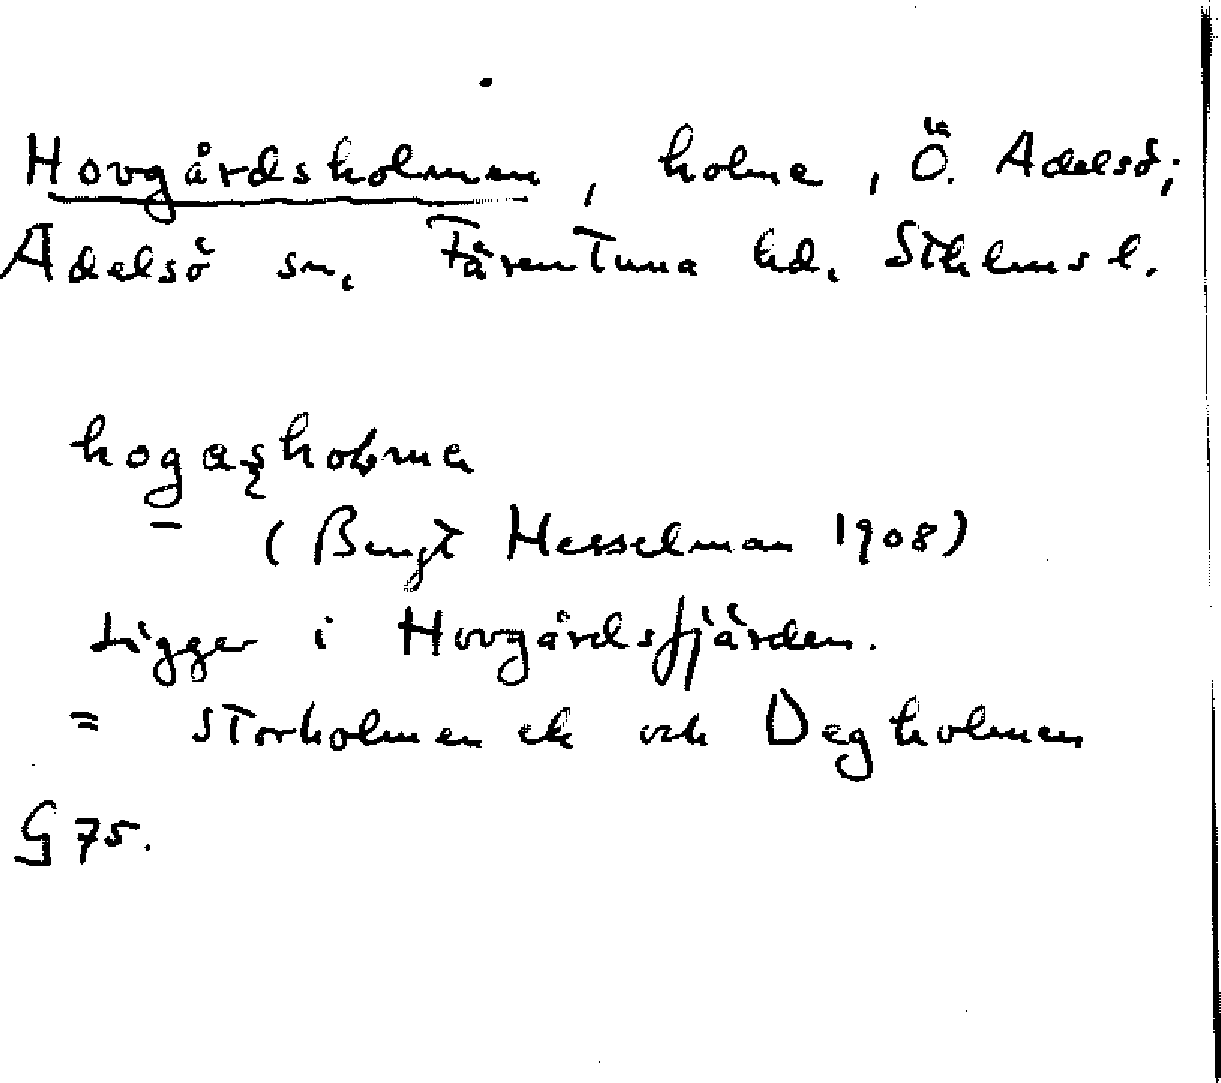 Hovgårdsholmen, holme, Ö. Adelsö;
Adelsö sn. Färentuna hd. Sthlms l.
(Bengt Hesselman 1908)
Ligger i Hovgårdsfjärden.
= Storholmen ek och Dagholmen
G 75.